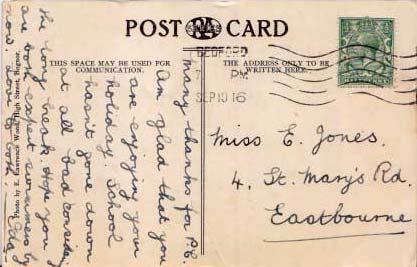 POST CARD
THIS SPACE MAY BE USED FOR
COMMUNICATION.
THE ADDRESS ONLY TO BE
WRITTEN HERE.
BEDFORD
7 PM
SEP 10 16
many thanks for P.C.
Am glad that you
are enjoying your
holiday. School
hasn't gone down
at all bad considering
the long break. Hope you
are both expert swimmers by
now. Love to both.
Photo by E. Lawrence Wood, High Street, Bognor.
Miss E. Jones.
4, St. Mary's Rd.
Eastbourne